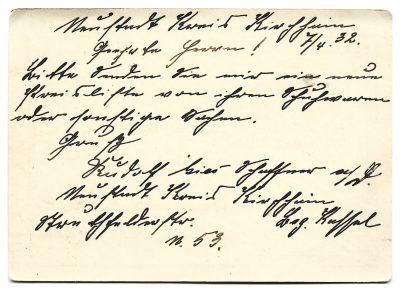 Neustadt Kreis Kirchhain
Geehrte Herrn! 7/4. 32.
Bitte senden Sie mir ein neue
Preisliste von ihren Schuhwaren
oder sonstige Sachen.
Gruß
Rudolf Schaffner
Neustadt Kreis Kirchhain
Bez. Kassel
N. 53.